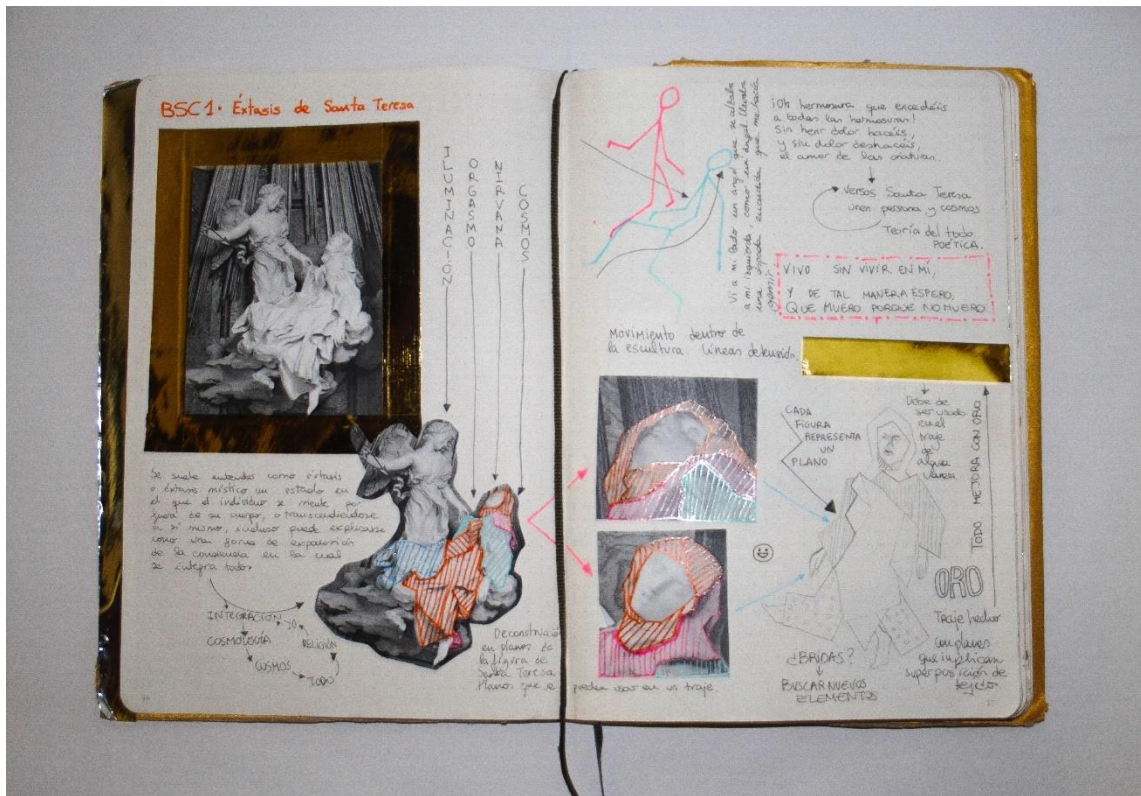 BSC1. Éxtasis de Santa Teresa
ILUMINACIÓN
ORGASMO
NIRVANA
COSMOS
Se suele entender como éxtasis
o éxtasis místico un estado en
el que el individuo se siente por
fuera de su cuerpo, o transcendiéndose
a sí mismo, incluso puede explicarse
como una forma de expansión
de la conciencia en la cual
se integra todo.
INTEGRACIÓN
YO
COSMOLOGÍA
RELIGIÓN
COSMOS
TODO
Deconstrucción
en planos de
la figura de
Santa Teresa
Planos que se pueden usar en un traje.
Vi a mi lado un ángel que se
a mi izquierda, como un ángel. Llevaba
una espada encendida que me hacía
¡Oh hermosura que excedéis
a todas las hermosuras!
Sin herir dolor hacéis,
sin dolor deshacéis,
el amor de las criaturas.
Versos Santa Teresa
unen persona y cosmos
Teoría del todo
POÉTICA.
VIVO SIN VIVIR EN MÍ,
Y DE TAL MANERA ESPERO,
QUE MUERO PORQUE NO MUERO
Movimiento dentro de
la escultura. Líneas de tensión.
CADA
FIGURA
REPRESENTA
UN
PLANO
Debe de
ser usado
en el
traje
de
alguna
manera
TODO MEJORA CON ORO
ORO
Traje hecho
con planos
que implican
superposición de
tejido
¿BRIDAS?
BUSCAR NUEVOS
ELEMENTOS